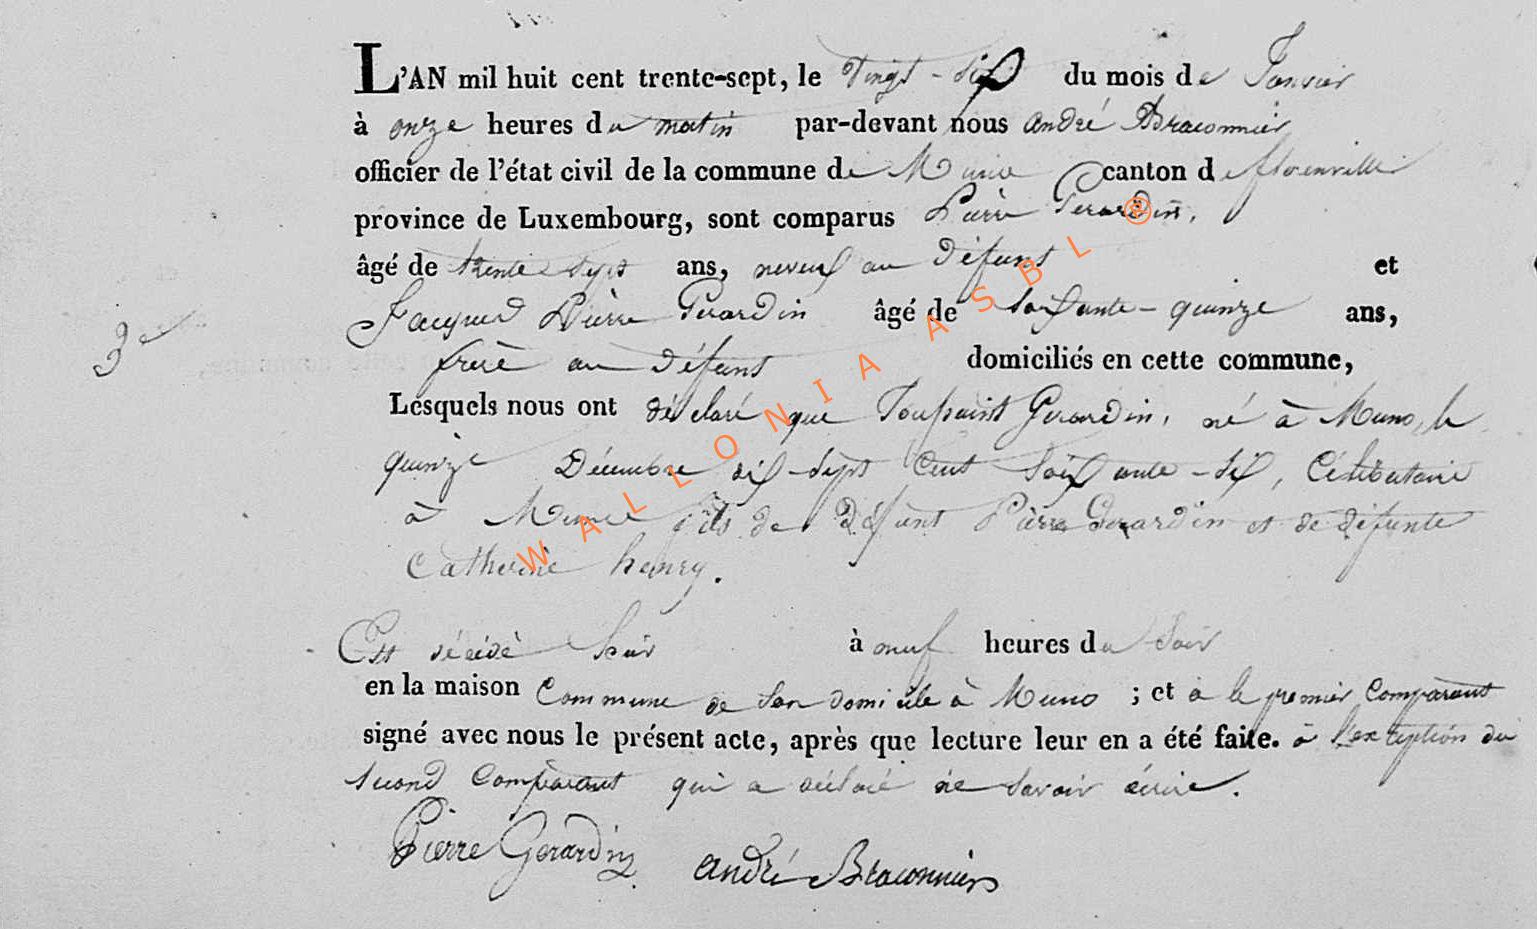 L'AN mil huit cent trente-sept, le vingt-six du mois de Janvier
à onze heures du matin par-devant nous André Braconnier
officier de l'état civil de la commune de Muno canton de florenville
province de Luxembourg, sont comparus Pierre Gerardin,
âgé de trente sept ans, neveux au défunt et
Jacques Pierre Gerardin âgé de soixante-quinze ans,
3e
frère au défunt domiciliés en cette commune,
Lesquels nous ont déclaré que Toussaint Gerardin, né à Muno, le
quinze Décembre dix-sept Cent soixante-six, Célibataire
à Muno fils de Défunt Pierre Gerardin et de défunte
Catherine henry.
Est décédé hier à neuf heures du soir
en la maison Commune de son domicile à Muno ; et a le premier Comparant
signé avec nous le présent acte, après que lecture leur en a été faite. à l'exception du
second Comparant qui a déclaré ne savoir écrire.
Pierre Gerardin André Braconnier
WALLONIA ASBL ®